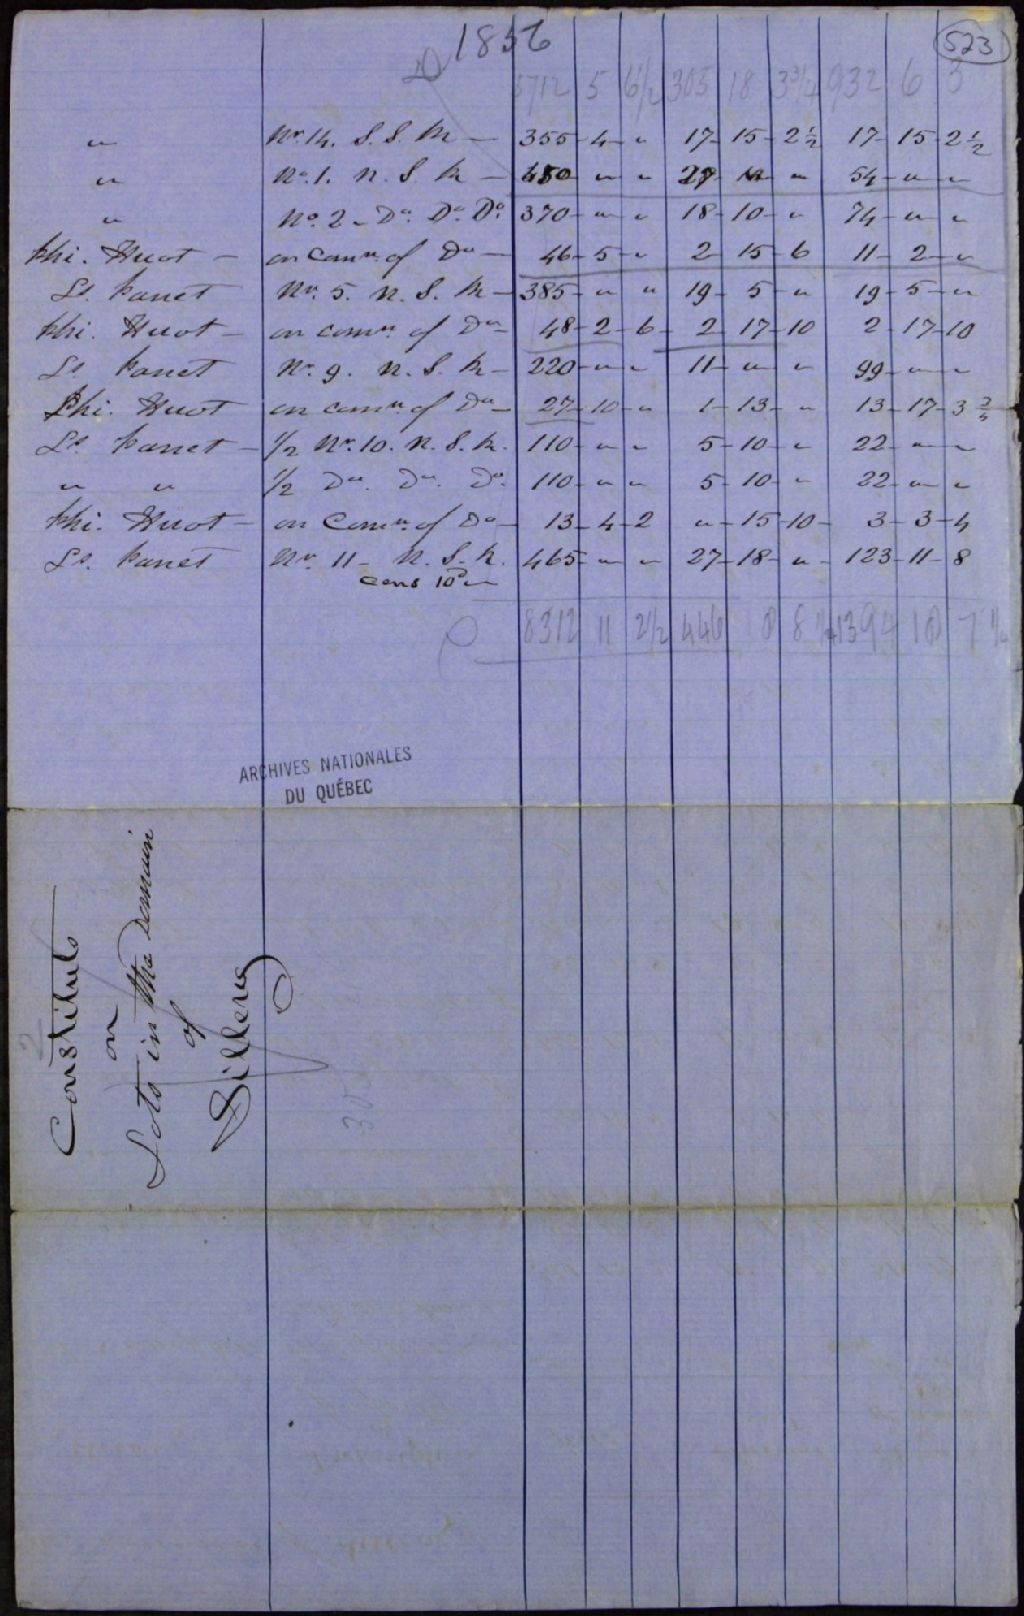 1856
523
5712 5 6 1/2 305 18 3 3/4 932 6 3
" No. 14. S. S. R — 355 - 4 - " 17 - 15 - 2 1/2 17 - 15 - 2 1/2
" No. 1. N. S. R — 450 - " - " 27 - " - " 54 - " - "
" No. 2 - Do. Do. Do. 370 - " - " 18 - 10 - " 74 - " - "
Phi. Huot — on comn. of Do — 46 - 5 - " 2 - 15 - 6 11 - 2 - "
Ls. Panet No. 5. N. S. R — 385 - " - " 19 - 5 - " 19 - 5 - "
Phi. Huot — on comn. of Do — 48 - 2 - 6 - 2 - 17 - 10 2 - 17 - 10
Ls. Panet No. 9. N. S. R — 220 - " - " 11 - " - " 99 - " - "
Phi. Huot on comn of Do — 27 - 10 - " 1 - 13 - " 13 - 17 - 3 3/4
Ls. Panet — 1/2 No. 10. N. S. R. 110 - " - " 5 - 10 - " 22 - " - "
" " 1/2 Do. Do. Do. 110 - " - " 5 - 10 - " 22 - " - "
Phi. Huot — on Comn. of Do — 13 - 4 - 2 " - 15 - 10 - 3 - 3 - 4
Ls. Panet No. 11 — N. S. R. 465 - " - " 27 - 18 - " - 123 - 11 - 8
8312 11 2 1/2 446 8 8 1/4 1394 18 7 1/4
ARCHIVES NATIONALES
DU QUÉBEC
Constituts
on
Lots in the Domain
of
Sillery